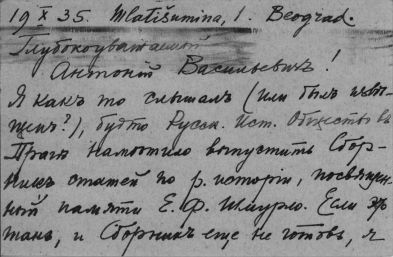 19 X 35. Mlatišumina, 1. Beograd.
Глубокоуважаемый
Антоній Васильевичъ!
Я какъ то слышалъ (или былъ извѣ-
щенъ?), будто Русск. Ист. Общество въ
Прагѣ намѣтило выпустить Сбор-
никъ статей по р. исторіи, посвящен-
ный памяти Е. Ф. Шмурло. Если это
такъ, и Сборникъ еще не готовъ, я